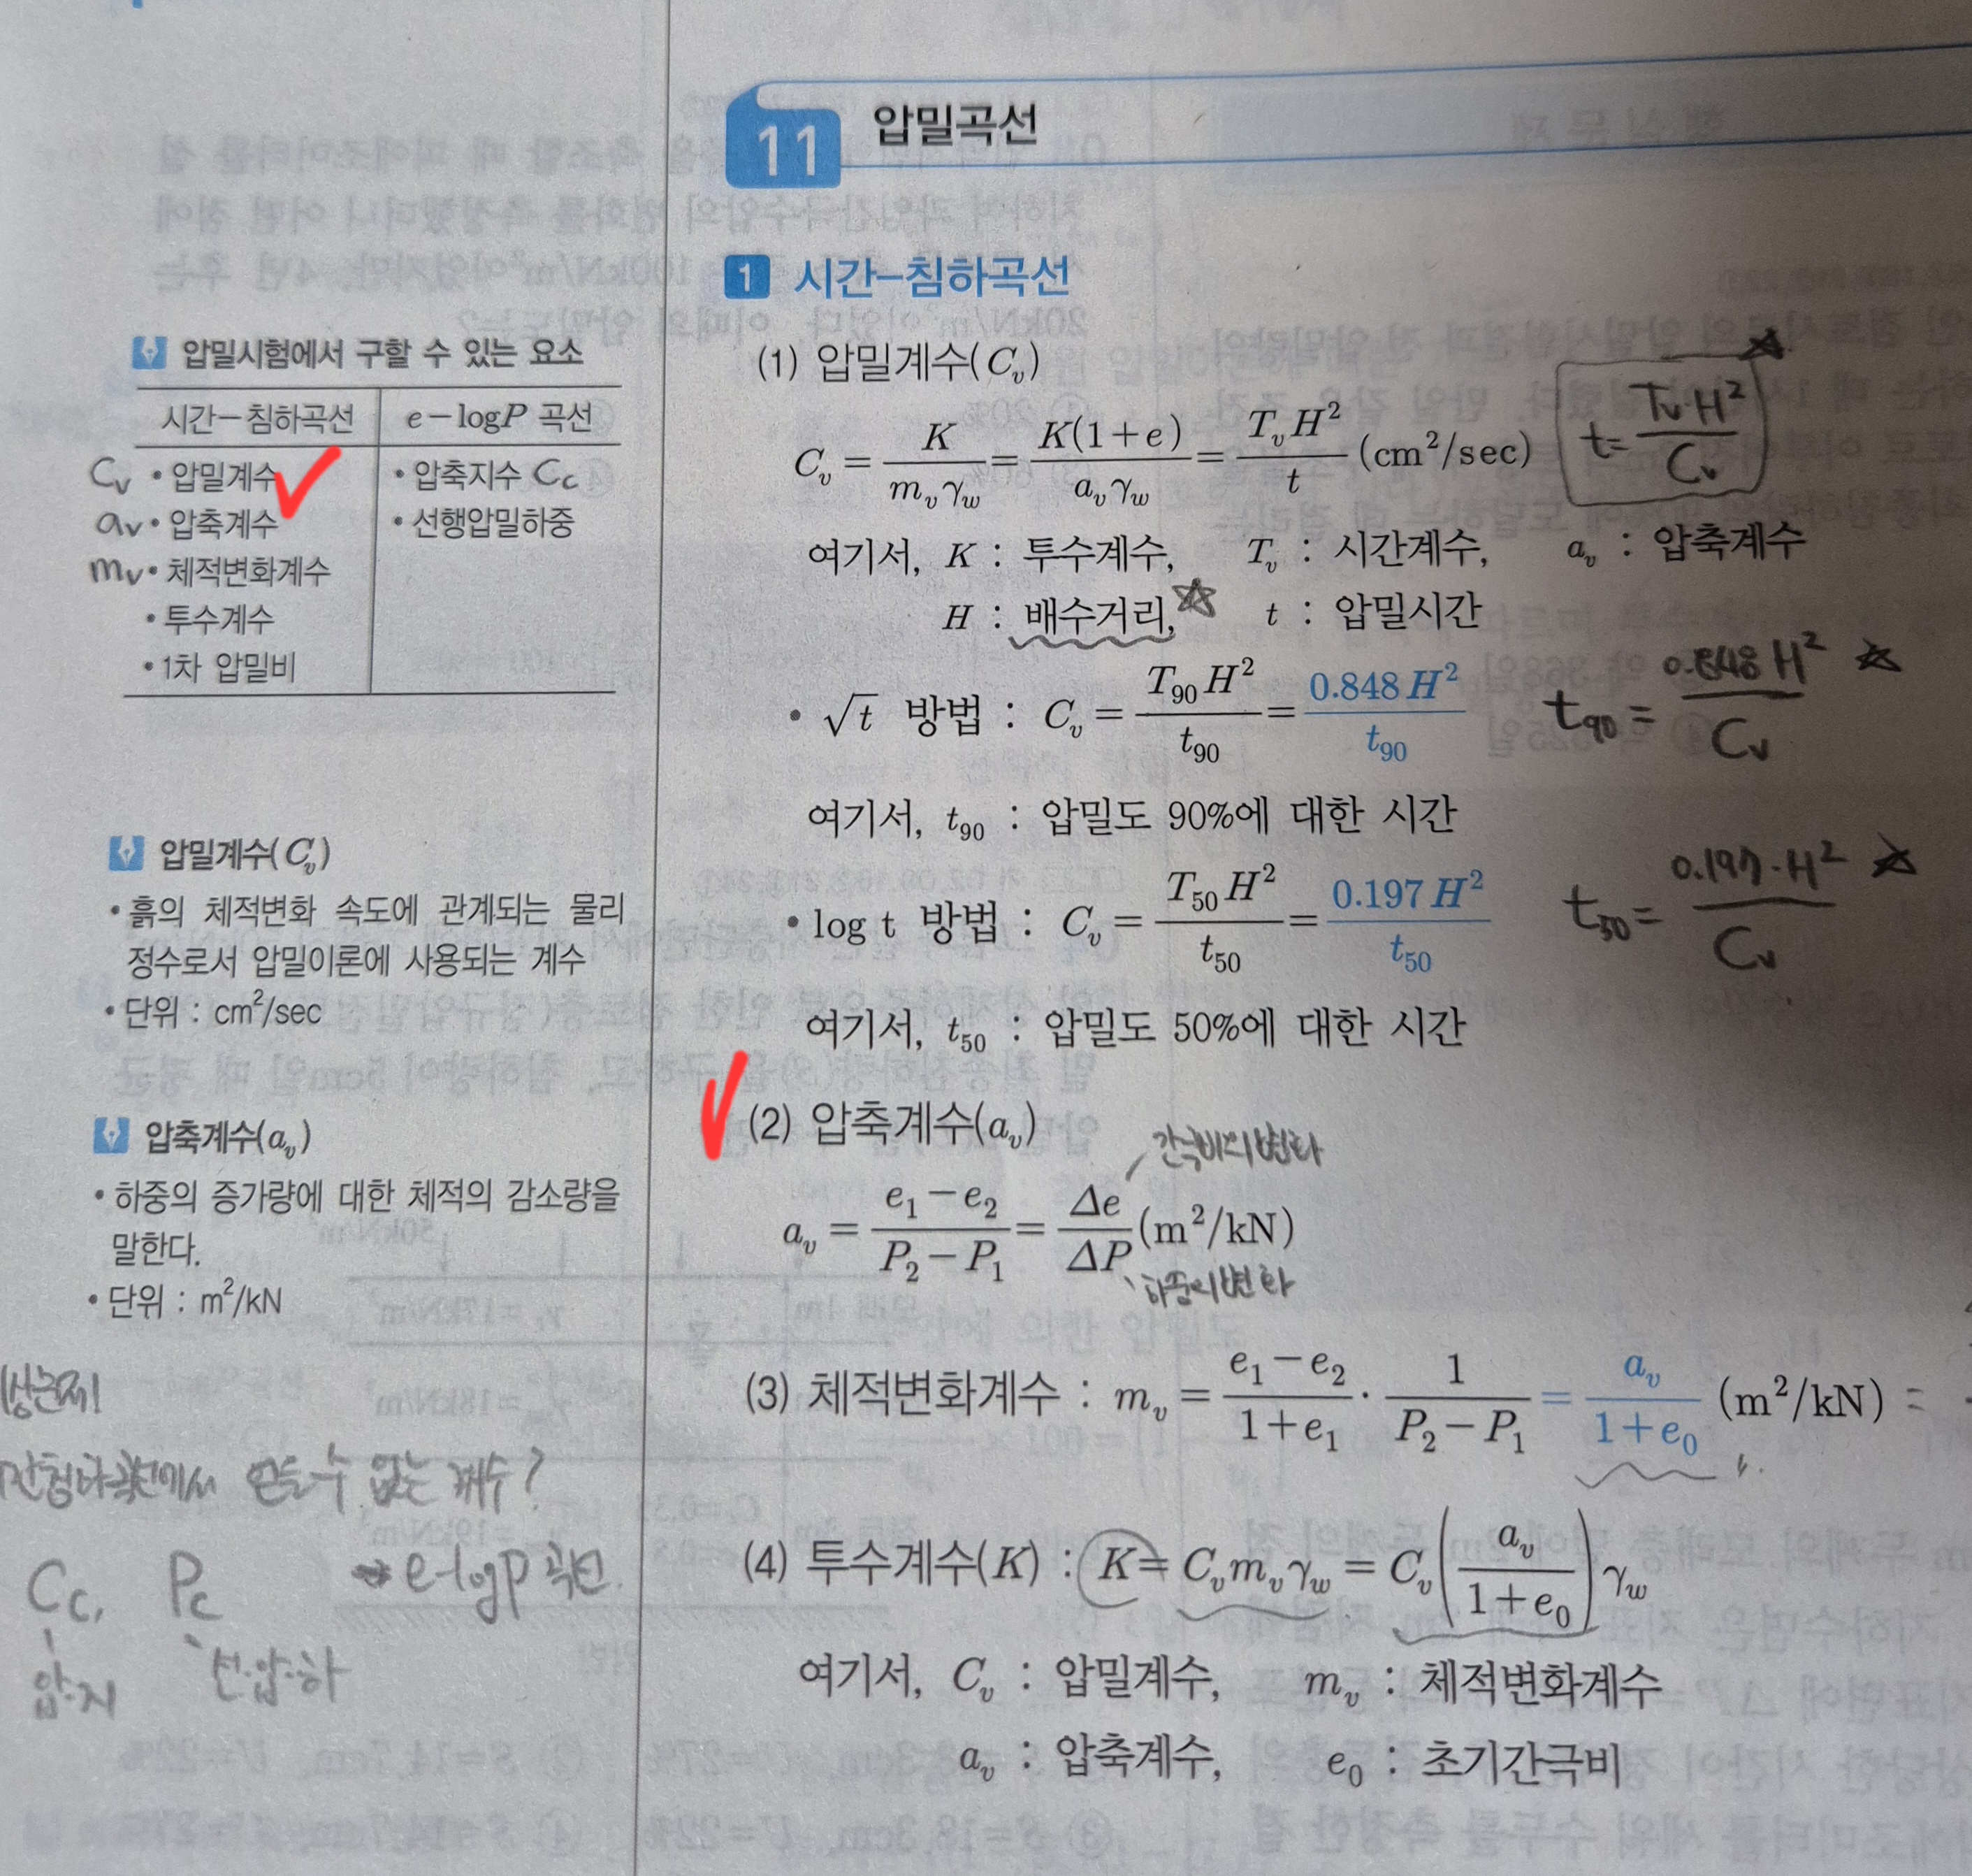 11 압밀곡선
1 시간-침하곡선
압밀시험에서 구할 수 있는 요소
시간-침하곡선 e-logP 곡선
Cv • 압밀계수 • 압축지수 Cc
av • 압축계수 • 선행압밀하중
mv • 체적변화계수
• 투수계수
• 1차 압밀비
압밀계수(Cv)
• 흙의 체적변화 속도에 관계되는 물리
정수로서 압밀이론에 사용되는 계수
• 단위 : cm²/sec
압축계수(av)
• 하중의 증가량에 대한 체적의 감소량을
말한다.
• 단위 : m²/kN
얻을 수 없는 계수?
Cc, Pc e-logP 곡선
압·지 선·압·하
(1) 압밀계수(Cv)
Cv = K / mvγw = K(1+e) / avγw = TvH² / t (cm²/sec) t = Tv·H² / Cv
여기서, K : 투수계수, Tv : 시간계수, av : 압축계수
H : 배수거리, t : 압밀시간
• √t 방법 : Cv = T90H² / t90 = 0.848H² / t90 t90 = 0.848H² / Cv
여기서, t90 : 압밀도 90%에 대한 시간
• log t 방법 : Cv = T50H² / t50 = 0.197H² / t50 t50 = 0.197·H² / Cv
여기서, t50 : 압밀도 50%에 대한 시간
(2) 압축계수(av)
간극비의 변화
av = e1-e2 / P2-P1 = Δe / ΔP (m²/kN)
하중의 변화
(3) 체적변화계수 : mv = e1-e2 / 1+e1 · 1 / P2-P1 = av / 1+e0 (m²/kN) =
(4) 투수계수(K) : K = Cvmvγw = Cv(av / 1+e0)γw
여기서, Cv : 압밀계수, mv : 체적변화계수
av : 압축계수, e0 : 초기간극비